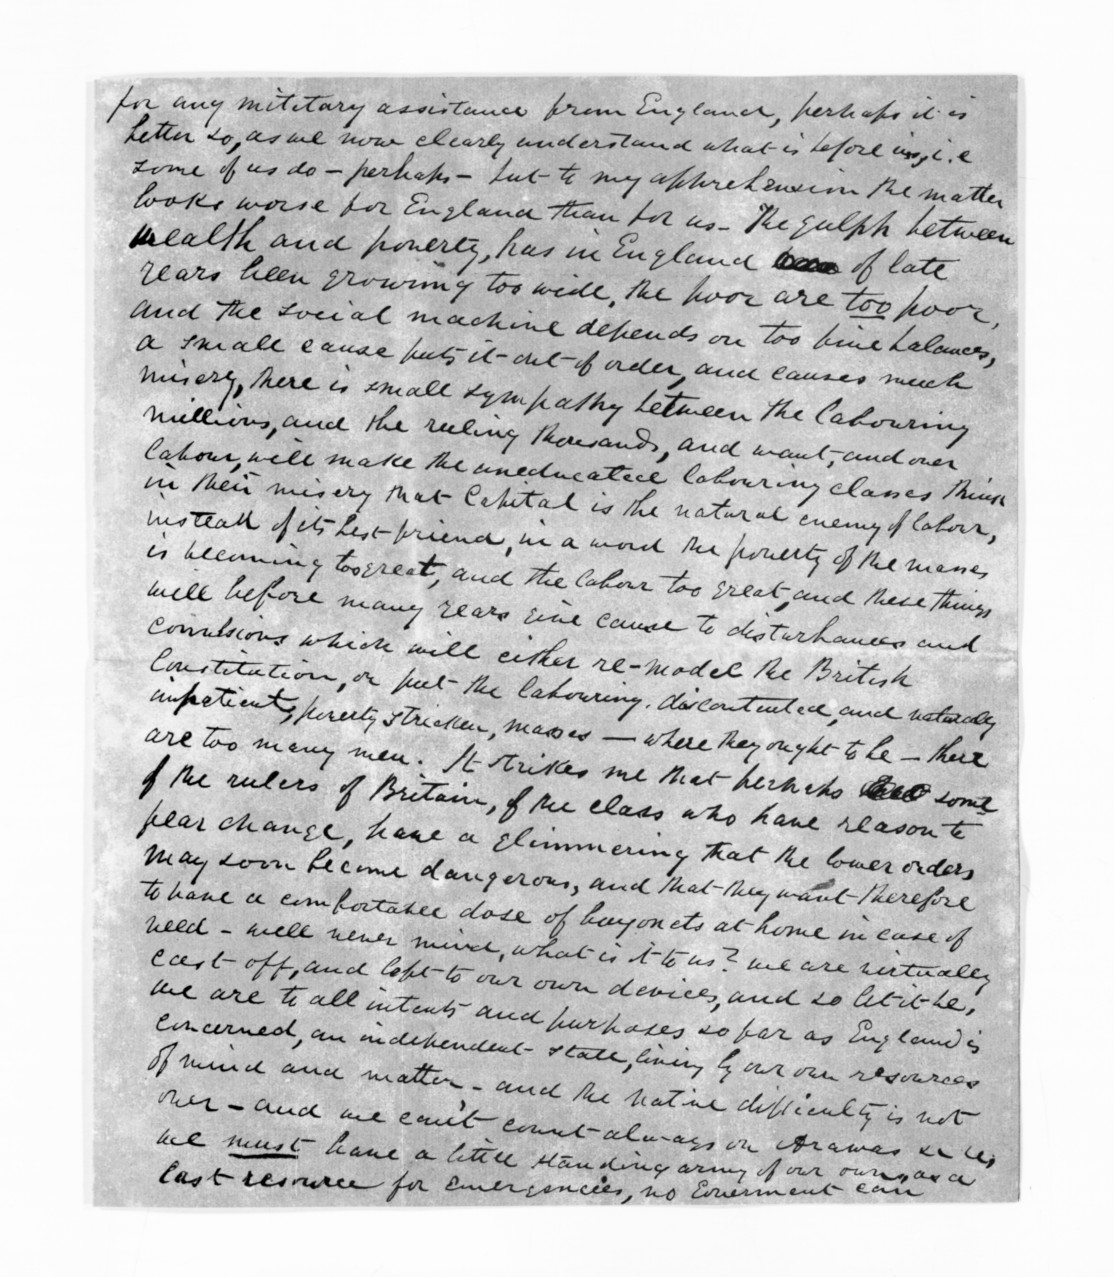 for any military assistance from England, perhaps it is
better so, as we now clearly understand what is before us, i.e
some of us do – perhaps – but to my apprehension the matter
looks worse for England than for us – The gulph between
wealth and poverty, has in England of late
years been growing too wide, the poor are too poor,
and the social machine depends on too fine balances,
a small cause puts it out of order, and causes much
misery, there is small sympathy between the labouring
millions, and the ruling thousands, and want, and over
labour, will make the uneducated labouring classes think
in their misery that Capital is the natural enemy of labour,
instead of its best friend, in a word the poverty of the masses
is becoming too great, and the labour too great, and these things
will before many years give cause to disturbances and
convulsions which will either re-model the British
Constitution, or put the labouring, discontented, and naturally
impatient, poverty stricken, masses – where they ought to be – there
are too many men. It strikes me that perhaps some
of the rulers of Britain, of the class who have reason to
fear change, have a glimmering that the lower orders
may soon become dangerous, and that they want therefore
to have a comfortable dose of bayonets at home in case of
need – well never mind, what is it to us? we are virtually
cast off, and left to our own devices, and so let it be,
we are to all intents and purposes so far as England is
concerned, an independent state, living by our own resources
of mind and matter – and the native difficulty is not
over – and we can't count always on Arawas
we must have a little standing army of our own, as a
last resource for emergencies, no Goverment can